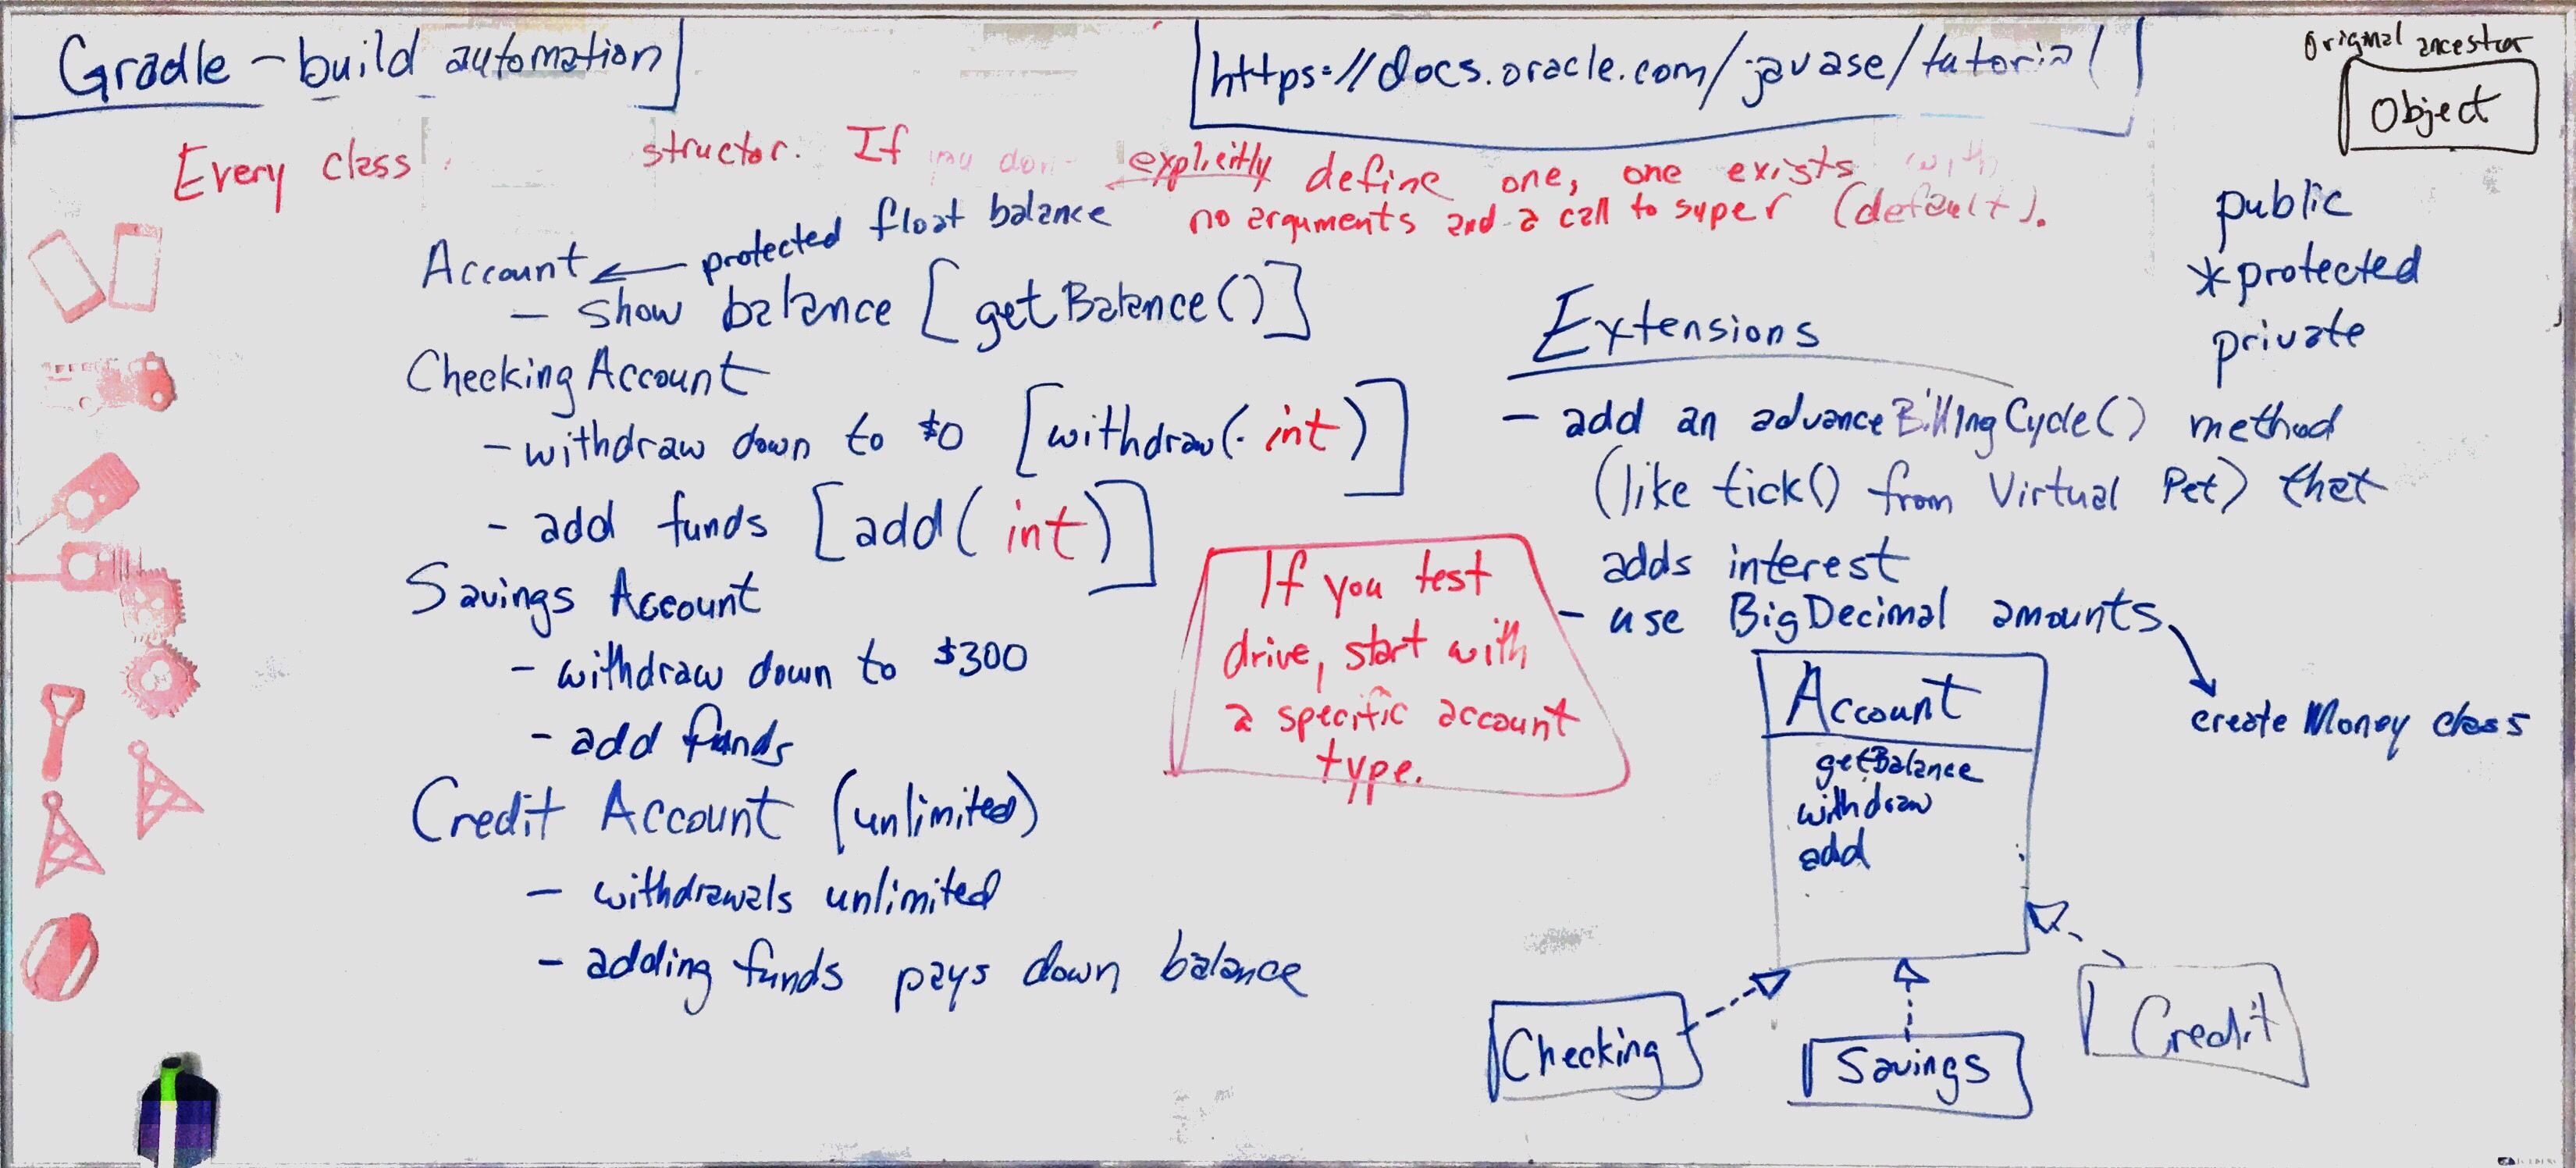 Gradle - build automation
https://docs.oracle.com/javase/tutorial
Original ancestor
Object
Every class structor. If you don explicitly define one, one exists with
no arguments and a call to super (default).
public
*protected
private
Account ← protected float balance
- show balance [getBalance()]
Checking Account
- withdraw down to $0 [withdraw(int)]
- add funds [add(int)]
Savings Account
- withdraw down to $300
- add funds
Credit Account (unlimited)
- withdrawals unlimited
- adding funds pays down balance
If you test
drive, start with
a specific account
type.
Extensions
- add an advanceBillingCycle() method
(like tick() from Virtual Pet) that
adds interest
- use BigDecimal amounts
create Money class
Account
getBalance
withdraw
add
Checking
Savings
Credit